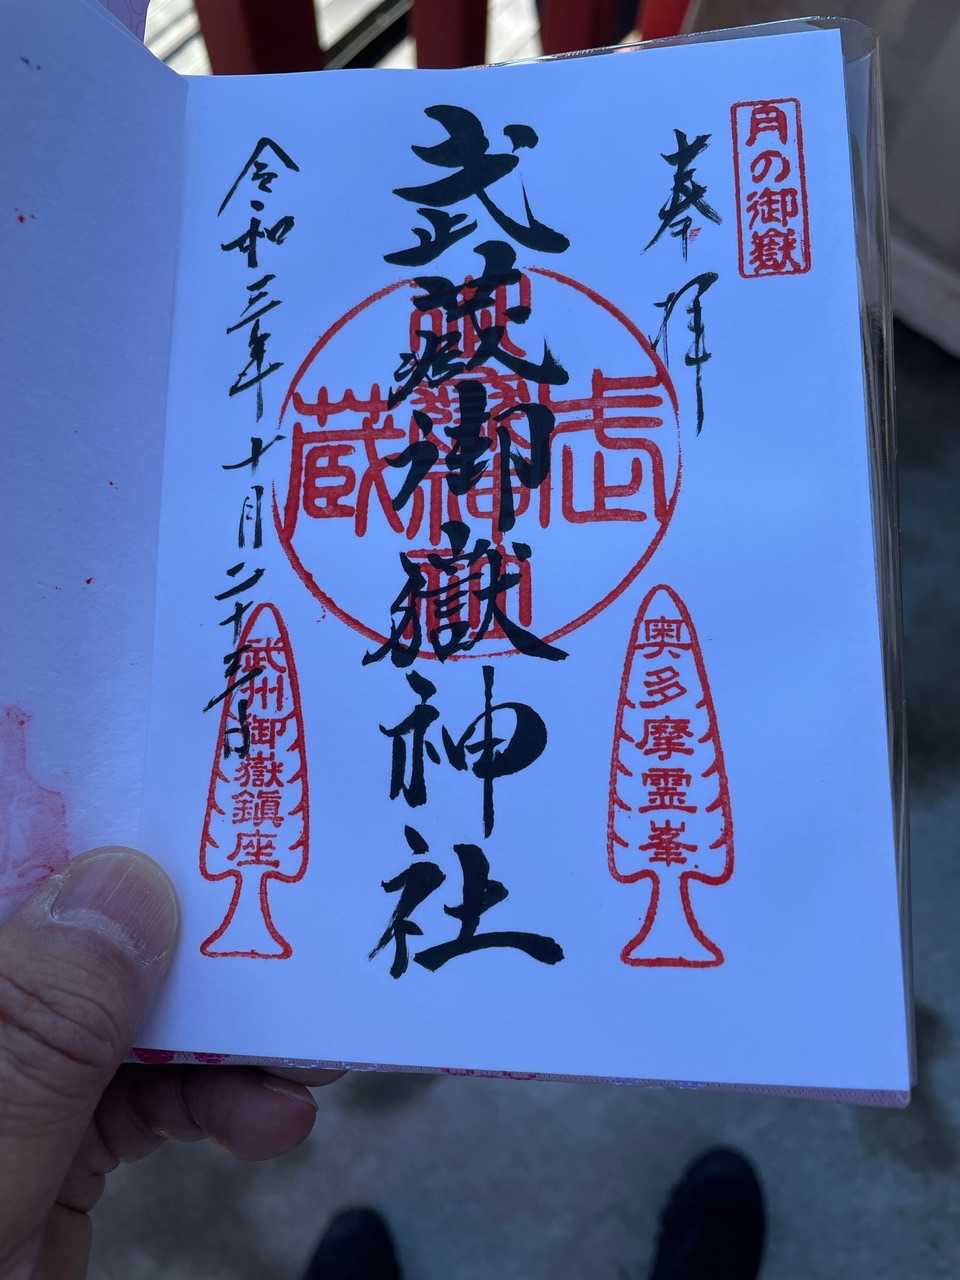 月の御嶽
奉拝
奥多摩霊峯
武蔵御嶽神社
武蔵
令和三年十月二十三日
武州御嶽鎮座